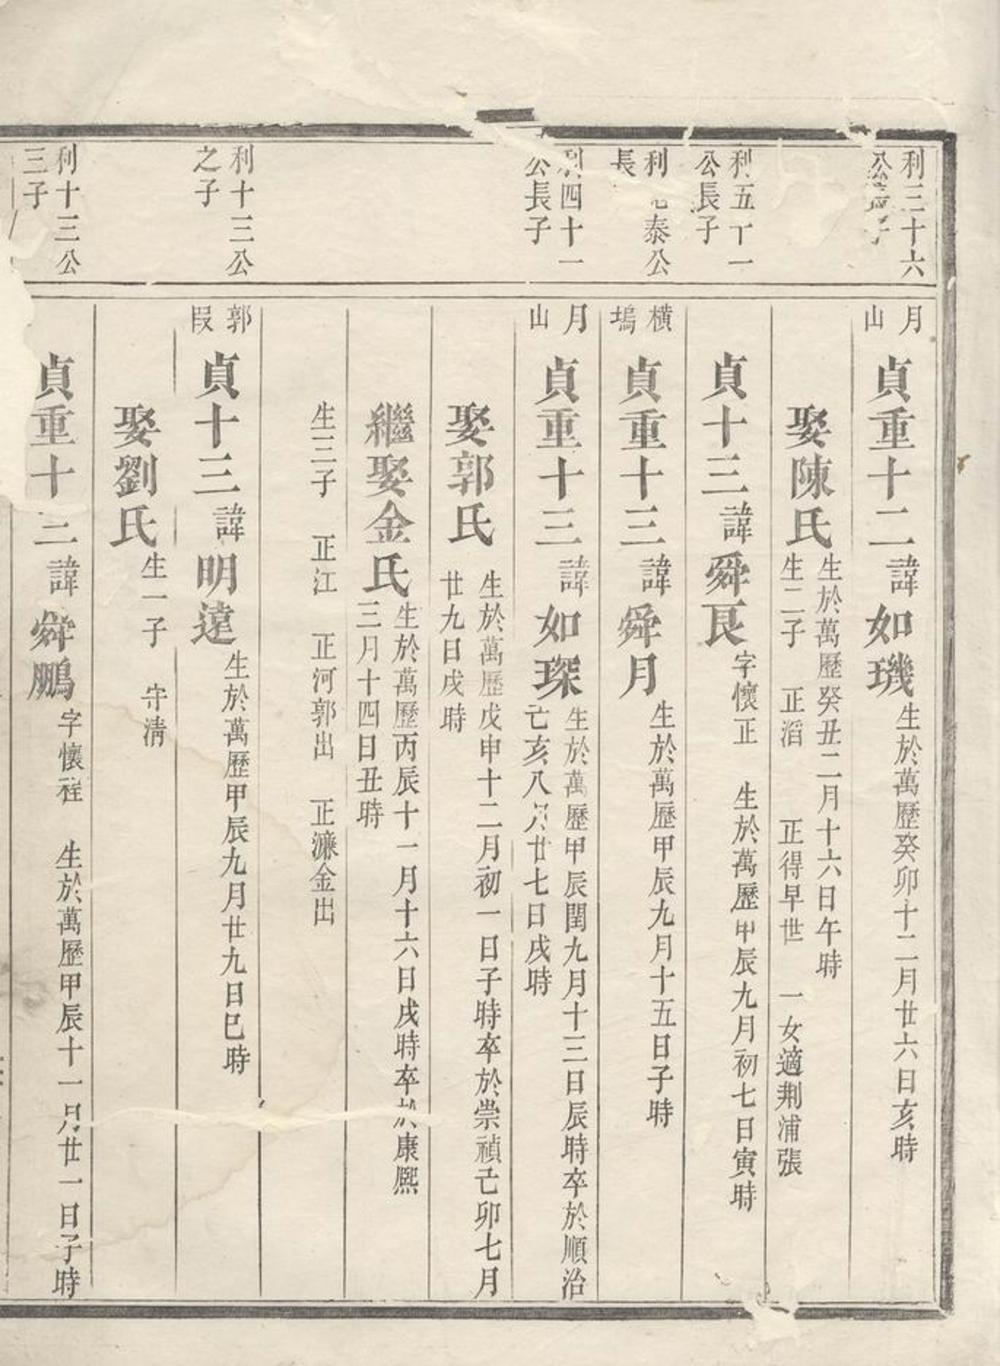 利三十六
公長子
月
山
貞重十二諱如璣生於萬歷癸卯十二月廿六日亥時
娶陳氏生於萬歷癸丑二月十六日午時
生二子 正滔 正得早世 一女適荆浦張
利五丁一
公長子
貞十三諱舜良字懷正 生於萬歷甲辰九月初七日寅時
利 泰公
長
橫
塢
貞重十三諱舜月生於萬歷甲辰九月十五日子時
利四十一
公長子
月
山
貞重十三諱如琛生於萬歷甲辰閏九月十三日辰時卒於順治
己亥八月廿七日戌時
娶郭氏 生於萬歷戊申十二月初一日子時卒於崇禎己卯七月
廿九日戌時
繼娶金氏生於萬歷丙辰十一月十六日戌時卒於康熈
三月十四日丑時
生三子 正江 正河郭出 正濂金出
利十三公
之子
郭
叚
貞十三諱明遠生於萬歷甲辰九月廿九日巳時
娶劉氏生一子 守淸
利十三公
三子
貞重十三諱舜鵬字懷程 生於萬歷甲辰十一月廿一日子時